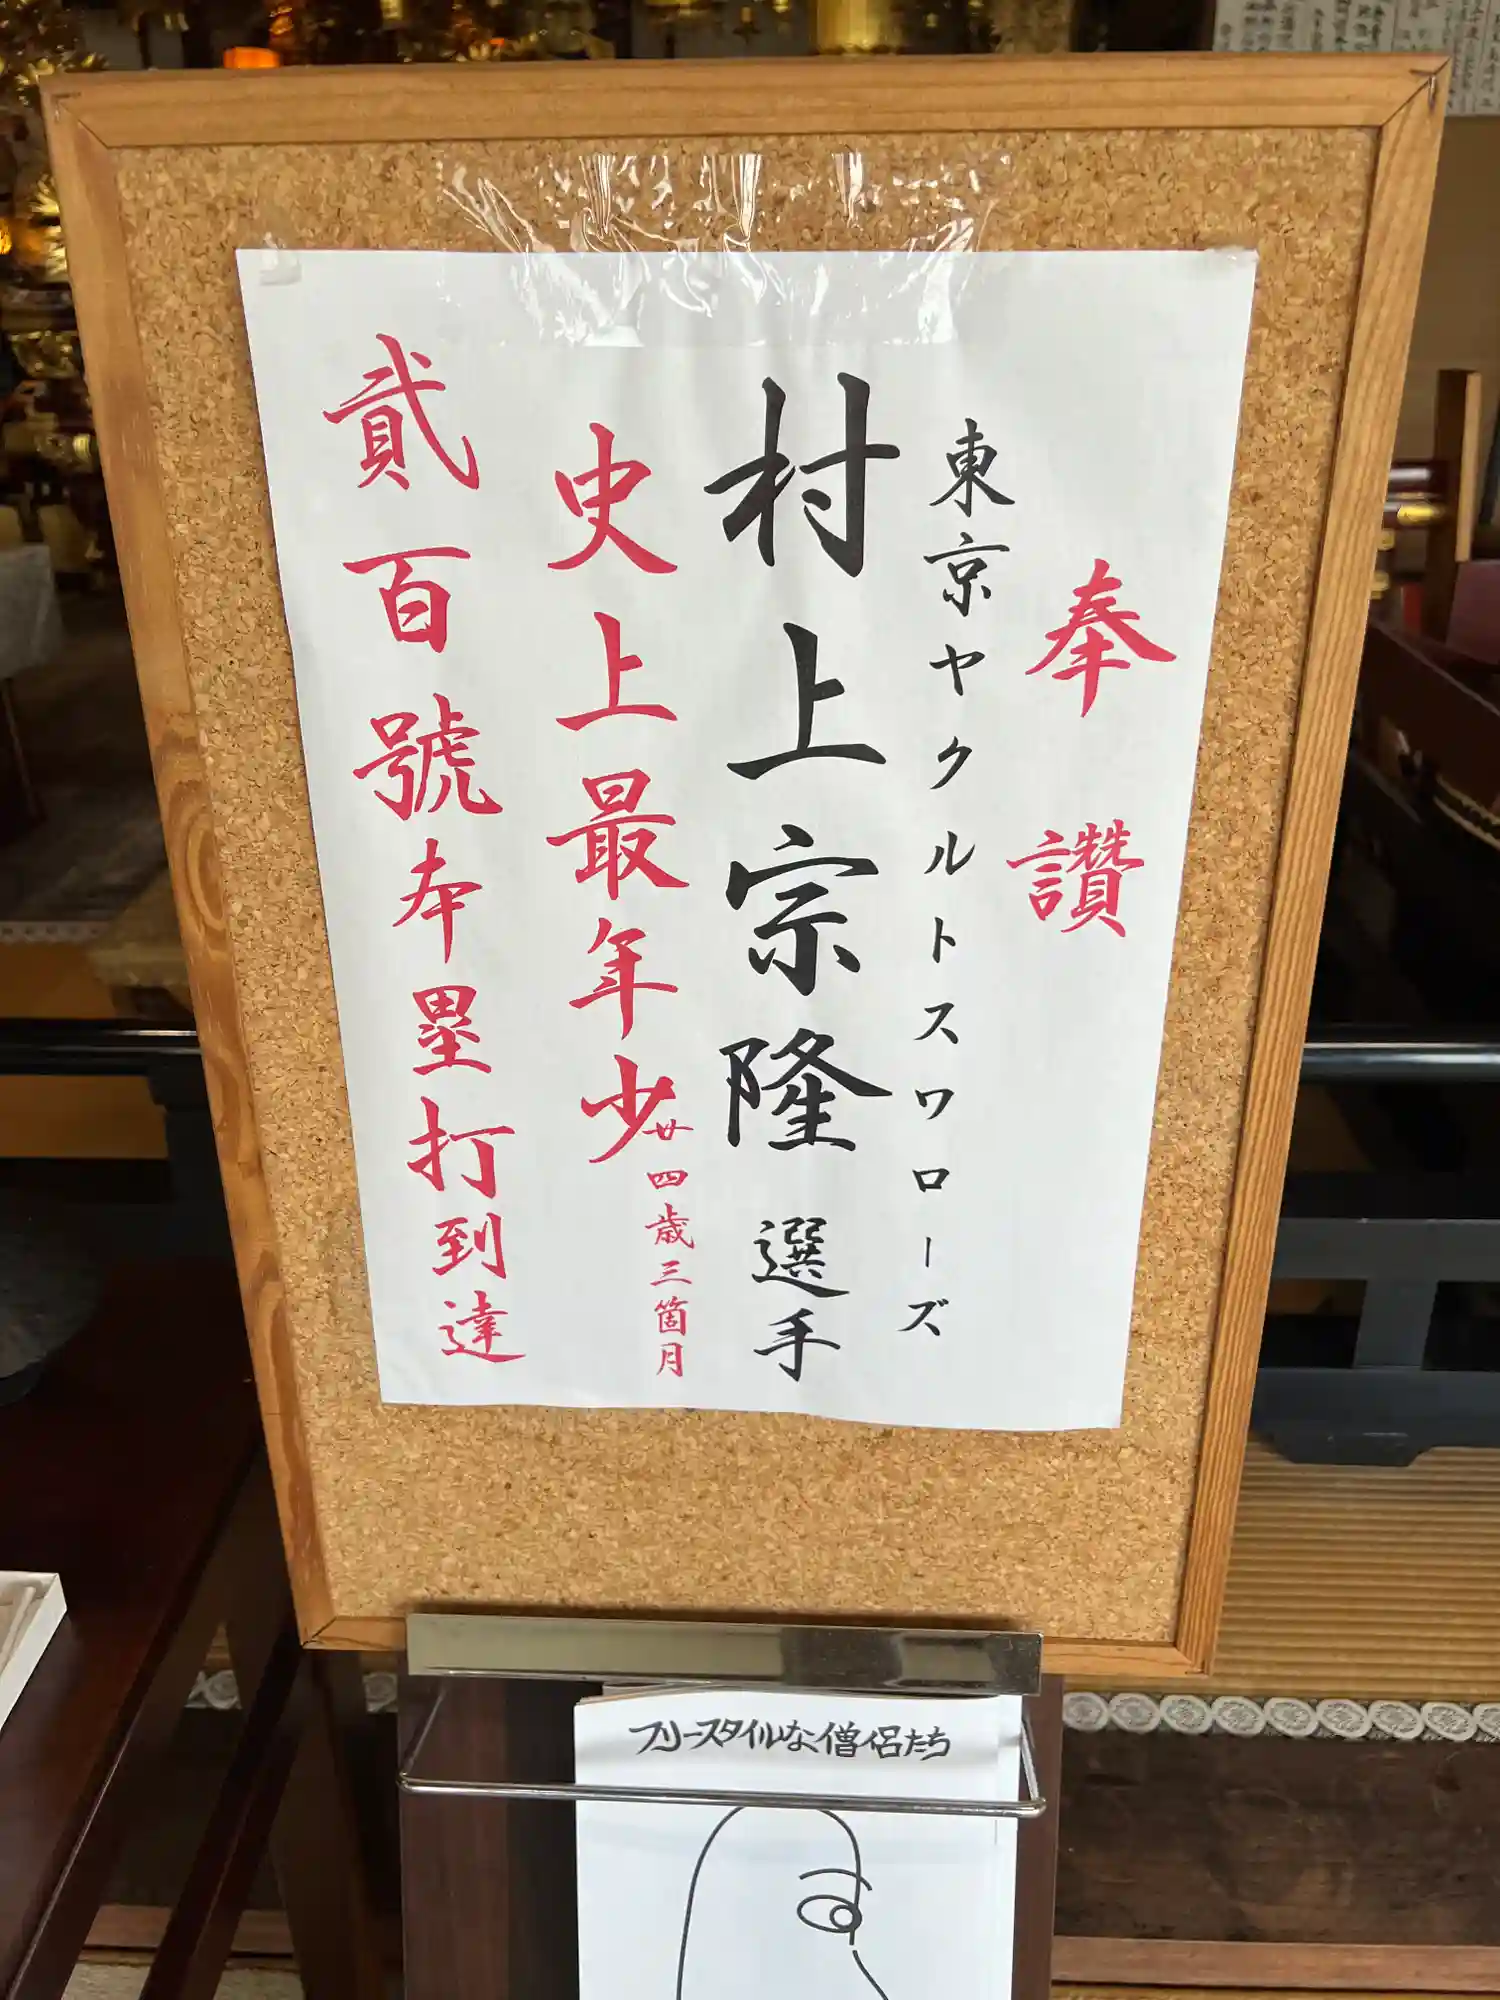 奉讃
東京ヤクルトスワローズ
村上宗隆選手
史上最年少廿四歳三箇月
貳百號本塁打到達
フリースタイルな僧侶たち